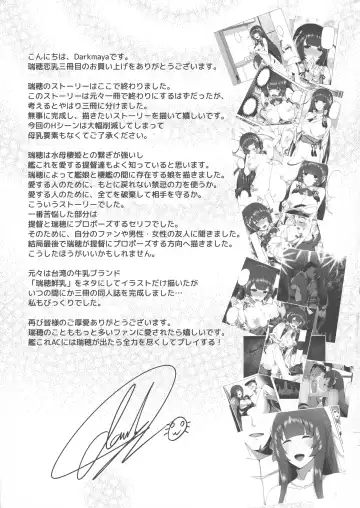 こんにちは、Darkmayaです。
瑞穂恋乳三冊目のお買い上げをありがとうございます。
瑞穂のストーリーはここで終わりました。
このストーリーは元々一冊で終わりにするはずだったが、
考えるとやはり三冊に分けました。
無事に完成し、描きたいストーリーを描いて嬉しいです。
今回のHシーンは大幅削減してしまって
母乳要素もなくてご了承ください。
瑞穂は水母棲姫との繋ぎが強いし
艦これを愛する提督達もよく知っていると思います。
瑞穂によって艦娘と棲艦の間に存在する娘を描きました。
愛する人のために、もとに戻れない禁忌の力を使うか。
愛する人のために、全てを破棄して相手を守るか。
こういうストーリーでした。
一番苦悩した部分は
提督と瑞穂にプロポーズするセリフでした。
そのために、自分のファンや男性・女性の友人に聞きました
結局最後で瑞穂が提督にプロポーズする方向へ描きました。
こうしたほうがいいかもしれません。
元々は台湾の牛乳ブランド
「瑞穂鮮乳」をネタにしてイラストだけ描いたが
いつの間にか三冊の同人誌を完成しました…
私もびっくりでした。
再び皆様のご厚愛ありがとうございます。
瑞穂のことももっと多いファンに愛されたら嬉しいです。
艦これACには瑞穂が出たら全力を尽くしてプレイする！